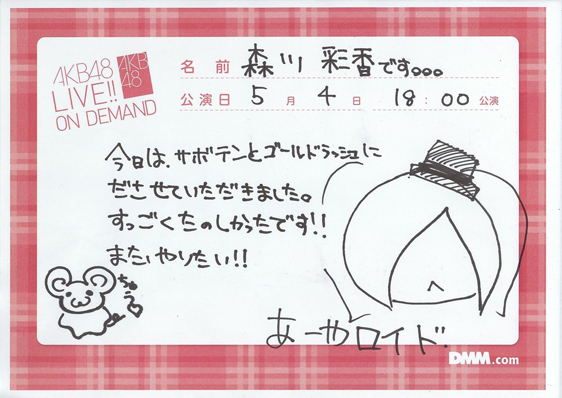 AKB48
LIVE!!
ON DEMAND
AKB
48
名前 森川 彩香です。。。
公演日 5月 4日 18:00 公演
今日は、サボテンとゴールドラッシュに
ださせていただきました。
すっごくたのしかったです!!
またやりたい!!
ちゅう
あーやロイド
DMM.com